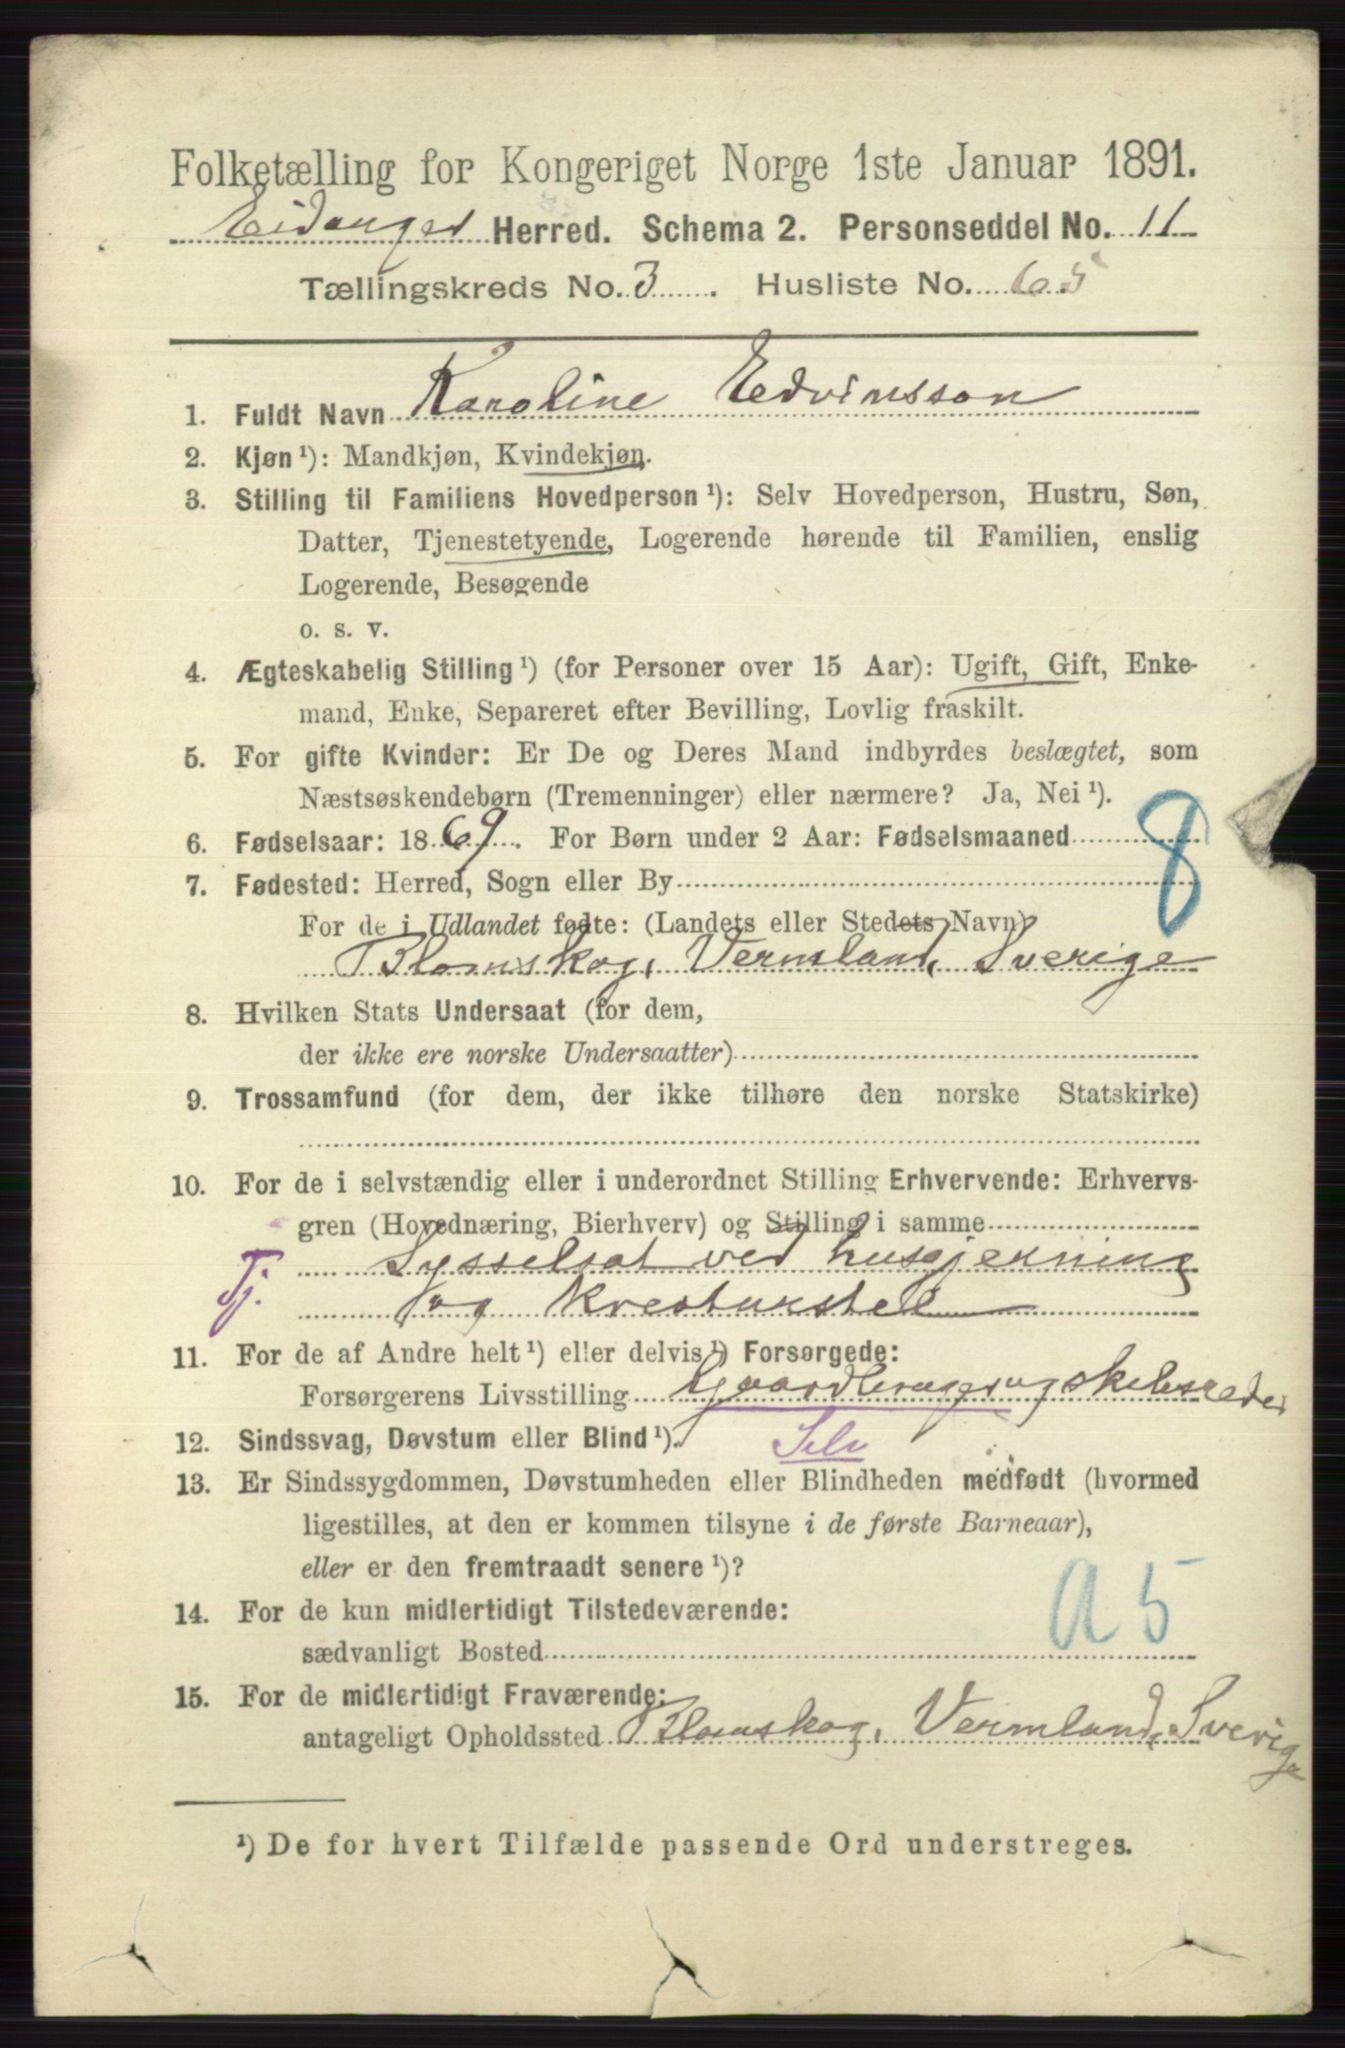 Folketælling for Kongeriget Norge 1ste Januar 1891.
Eidanger Herred. Schema 2. Personseddel No. 11
Tællingskreds No. 3. Husliste No. 65
1. Fuldt Navn Karoline Edvinsson
2. Kjøn¹): Mandkjøn, Kvindekjøn.
3. Stilling til Familiens Hovedperson¹): Selv Hovedperson, Hustru, Søn,
Datter, Tjenestetyende, Logerende hørende til Familien, enslig
Logerende, Besøgende
o. s. v.
4. Ægteskabelig Stilling¹) (for Personer over 15 Aar): Ugift, Gift, Enke-
mand, Enke, Separeret efter Bevilling, Lovlig fraskilt.
5. For gifte Kvinder: Er De og Deres Mand indbyrdes beslægtet, som
Næstsøskendebørn (Tremenninger) eller nærmere? Ja, Nei¹).
6. Fødselsaar: 1869. For Børn under 2 Aar: Fødselsmaaned
8
7. Fødested: Herred, Sogn eller By
For de i Udlandet fødte: (Landets eller Stedets Navn)
Blomskog, Vermland, Sverige
8. Hvilken Stats Undersaat (for dem,
der ikke ere norske Undersaatter)
9. Trossamfund (for dem, der ikke tilhøre den norske Statskirke)
10. For de i selvstændig eller i underordnet Stilling Erhvervende: Erhvervs-
gren (Hovednæring, Bierhverv) og Stilling i samme
Tj. Sysselsat ved husgjerning
og kreaturstel
11. For de af Andre helt¹) eller delvis¹) Forsørgede:
Forsørgerens Livsstilling Gaardbruger og skibsreder
12. Sindssvag, Døvstum eller Blind¹). Selv
13. Er Sindssygdommen, Døvstumheden eller Blindheden medfødt (hvormed
ligestilles, at den er kommen tilsyne i de første Barneaar),
eller er den fremtraadt senere¹)?
a 5
14. For de kun midlertidigt Tilstedeværende:
sædvanligt Bosted
15. For de midlertidigt Fraværende:
antageligt Opholdssted Blomskog, Vermland, Sverige
¹) De for hvert Tilfælde passende Ord understreges.